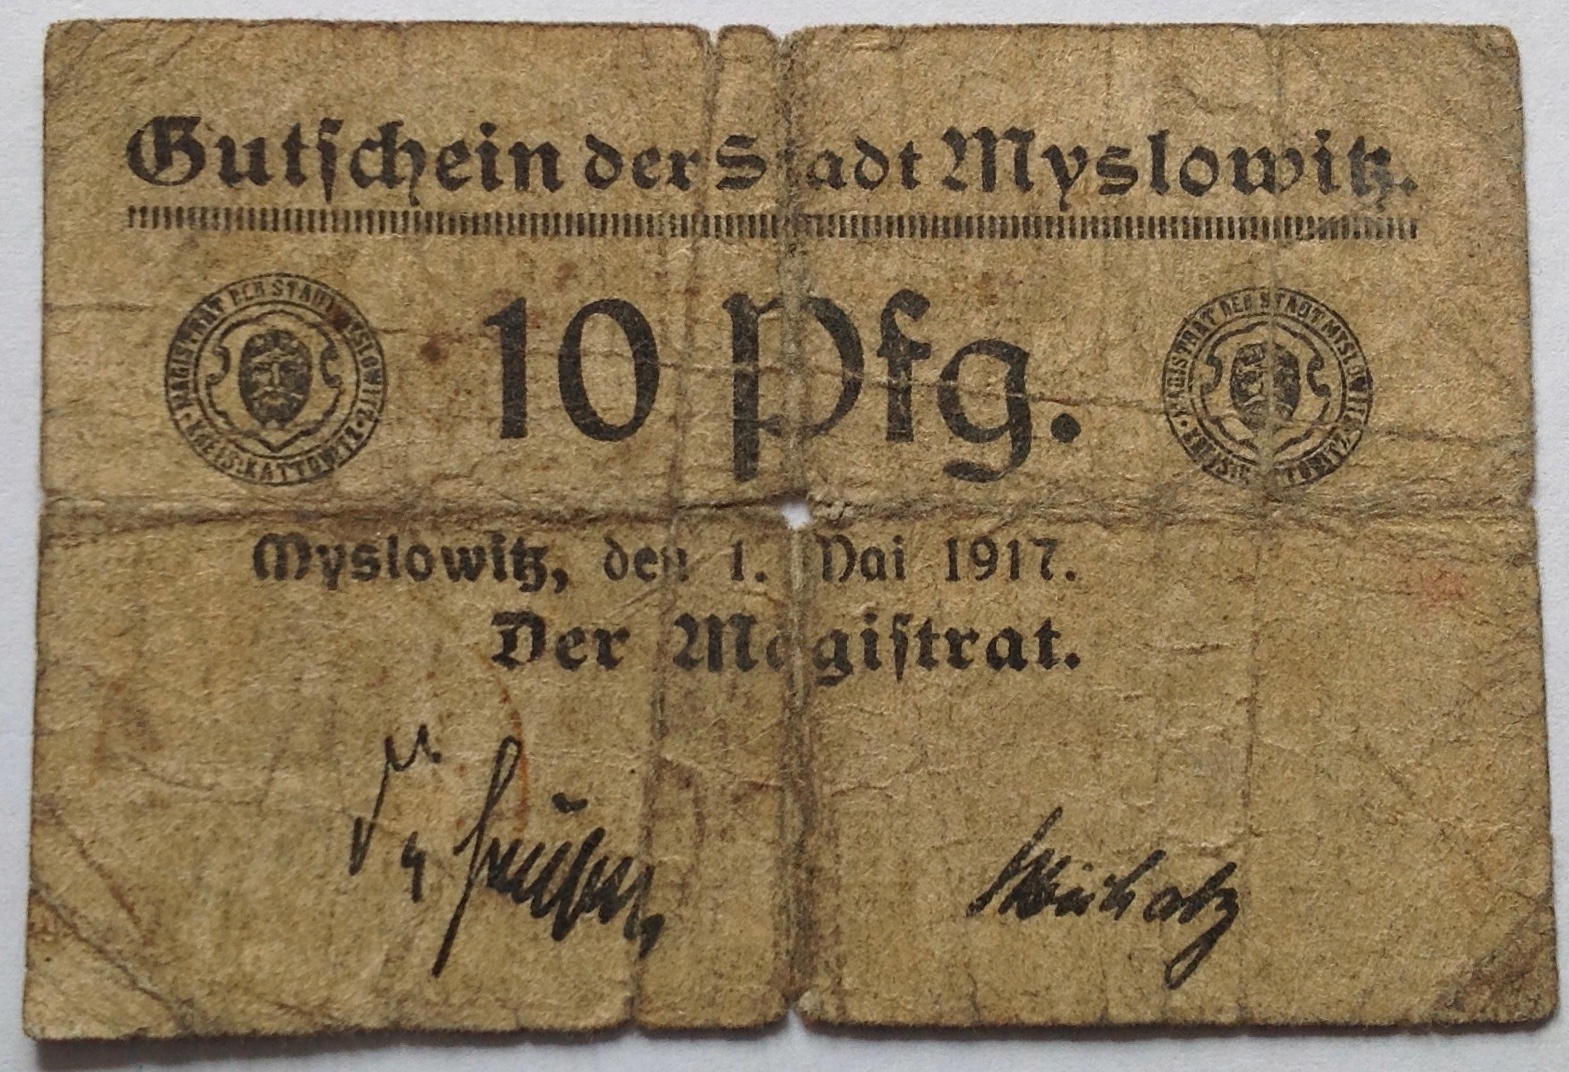 Gutschein der Stadt Myslowitz.
MAGISTRAT DER STADT MYSLOWITZ · KREIS KATTOWITZ ·
10 Pfg.
MAGISTRAT DER STADT MYSLOWITZ
Myslowitz, den 1. Mai 1917.
Der Magistrat.